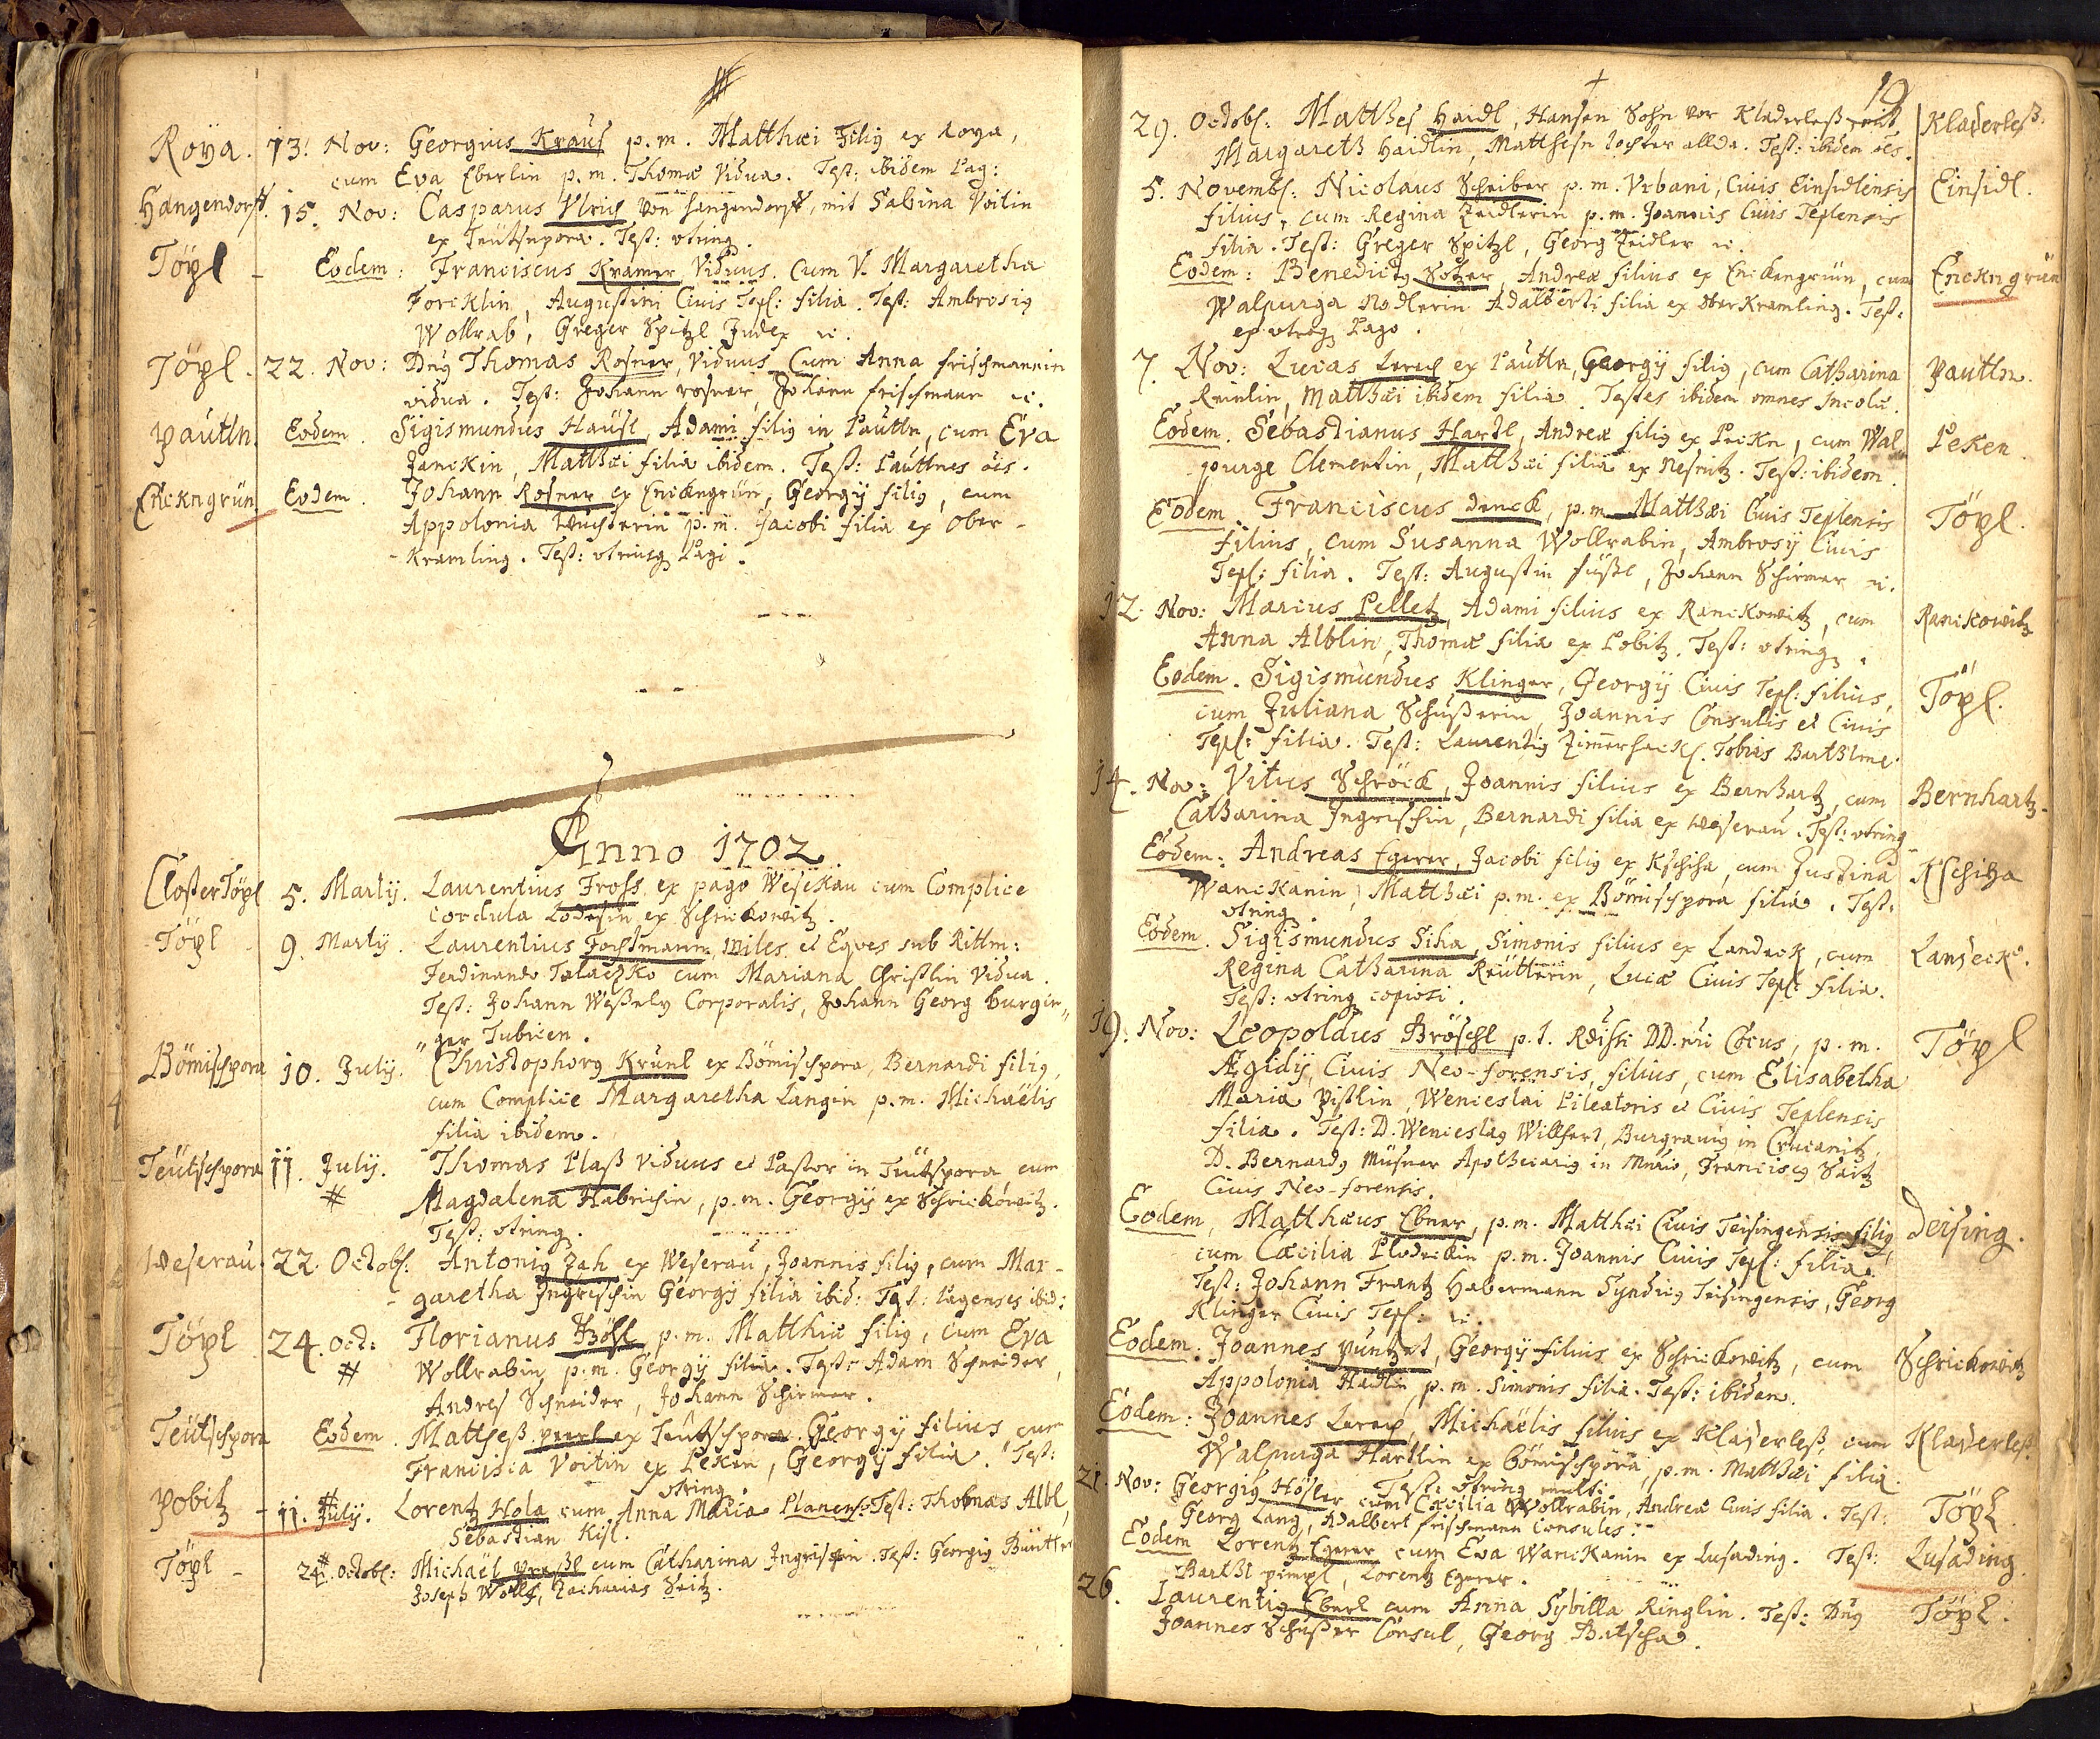 Roÿa. 13. Nov: Georgius Kraus p.m. Matthæi Filiꝰ ex Roya,
cum Eva Eberlin p.m. Thomæ Vidua. Test: ibidem Pag:
Hangendorff. 15. Nov: Casparus Ulrich von Hangendorff, mit Sabina Voitin
ex Teütschpora. Test: utrinqꝫ.
Töpl - Eodem: Franciscus Kramer Viduus. Cum V. Margaretha
Foricklin, Augustini Civis Tepl: filia. Test: Ambrosiꝰ
Wollrab, Greger Spitzl Judex ꝛc.
Töpl. 22. Nov: Dnꝰ Thomas Rosner, Viduus Cum Anna frischmannin
vidua. Test: Johann rosner, Johann frischmann ꝛc.
Pautln. Eodem. Sigismundus Häusl, Adami filiꝰ in Pautln, cum Eva
Janckin, Matthæi filia ibidem. Test: Pautlnes oēs.
Enckngrün Eodem. Johann Rosner ex Enckengrün, Georgÿ filiꝰ, cum
Appolonia Wuchterin p.m. Jacobi filia ex Ober-
-Kramling. Test: utriusqꝫ Pagi.
Anno 1702
Closter Töpl 5. Martÿ. Laurentius Fross ex pago Wesekau cum Complice
Cordula Lodesin ex Schrickowitz.
Töpl - 9. Martÿ. Laurentius Fochtmann miles et Eqves sub Rittm:
Ferdinando Talaczko cum Mariana Christlin Vidua.
Test: Johann Wessely Corporalis, Johann Georg burgin„
„ger Tubicen.
Bömischpora 10. Julÿ. Christophorꝰ Krünl ex Bömischpora, Bernardi filiꝰ,
cum Complice Margaretha Langin p.m. Michaëlis
filia ibidem.
Teütschpora 11. Julÿ. Thomas Plass Viduus et Pastor in Teütspora cum
# Magdalena Habrichin, p.m. Georgÿ ex Schrickowitz.
Test: utrinqꝫ.
Weserau. 22. Octobr: Antoniꝰ Zah ex Weserau, Joannis filiꝰ, cum Mar-
-garetha Ingrischin Georgÿ filia ibid: Test: Pagenses ibid:
Töpl 24. Oct: Florianus Frössl p.m. Matthiæ filiꝰ, cum Eva
# Wollrabin p.m. Georgÿ filia. Test: Adam Schneider,
Andres Schneider, Johann Schirmer.
Teütschpora Eodem. Mattheß peerl ex Teutschpora. Georgÿ filius cum
Francisca Voitin ex Peken, Georgÿ filia. Test:
utrinqꝫ.
Pobitz - 11. Julÿ. # Lorentz Hola cum Anna Maria Planens: Test: Thomas Albl,
Sebastian Kisl.
Töpl - 24. # Octobr: Michaël cum Catharina Ingrischin. Test: Georgiꝰ
Joseph Wolff, Zacharias Seitz.
19
29. Octobr: Matthes Haidl, Hansen Sohn von Kladerless mit Kladerless.
Margareth Haidlin, Matthesn tochter allda. Test: ibidem oēs.
5. Novembr: Nicolaus Schreiber p.m. Urbani, Civis Einsidlensis Einsidl.
filius, cum Regina Zeidlerin p.m. Joannis Civis Teplensis
filia. Test: Greger Spitzl, Georg Zeidler ꝛc.
Eodem: Benedictꝰ Rotzer, Andreæ filius ex Enckengrün, cum Enckngrün
Walpurga Nodlerin Adalberti filia ex Ober Kramling. Test:
ex utroqꝫ Pago.
7. Nov: Lucas Lerch ex Pautln, Georgÿ filiꝰ, cum Catharina Pautln.
Reinlin, Matthæi ibidem filia. Testes ibidem omnes Incolæ.
Eodem. Sebastianus Hartl, Andreæ filiꝰ ex Peckn, cum Wal Peken
-purge Clementin, Matthæi filia ex Nesnitz. Test: ibidem.
Eodem Franciscus Denck, p.m. Matthæi Civis Teplensis Töpl.
filius, cum Susanna Wollrabin, Ambrosÿ Civis
Tepl: filia. Test: Augustin füssl, Johann Schirmer ꝛc.
12. Nov: Marcus Pelletz, Adami filius ex Ranckowitz, cum Ranckowitz
Anna Alblin, Thomæ filia ex Pobitz. Test: utrinqꝫ.
Eodem. Sigismundus Klinger, Georgÿ Civis Tepl: filius, Töpl.
cum Juliana Schusserin, Joannis Consulis et Civis
Tepl: filia. Test: Laurentiꝰ Zimmerhackl, Tobias Barthlme.
14. Nov: Vitus Schröck, Joannis filius ex Bernhartz, cum Bernhartz.
Catharina Ingrischin, Bernardi filia ex Weserau. Test: utrinqꝫ
Eodem: Andreas Egerer, Jacobi filiꝰ ex Kschiha, cum Justina Kschiha
Wanckanin, Matthæi p.m. ex Bömischpora filia. Test:
utrinqꝫ.
Eodem. Sigismundus Siha, Simonis filius ex Landeck, cum Landeck.
Regina Catharina Reütterin, Lucæ Civis Tepl: filia.
Test: utrinqꝫ copiosi.
19. Nov: Leopoldus Bröschl p.t. Rdissi DD. nri Cocus, p.m. Töpl
Ægidÿ, Civis Neo-forensis, filius, cum Elisabetha
Maria Pistlin, Wenceslai Pileatoris et Civis Teplensis
filia. Test: D. Wenceslaꝰ Willfert, Burgraviꝰ in Crucanitz,
D. Bernardꝰ Musner Apothecariꝰ in Murio, Franciscꝰ Saitz
Civis Neo-forensis.
Eodem, Matthæus Ebner, p.m. Matthæi Civis Teisingensis filiꝰ, Deising.
cum Cæcilia Plodeckin p.m. Joannis Civis Tepl: filia.
Test: Johann Frantz Habermann Syndicꝰ Teisingensis, Georg
Klinger Civis Tepl: ꝛc.
Eodem. Joannes Puntzet, Georgÿ filius ex Schrickowitz, cum Schrickowitz
Appolonia Hädlin, p.m. Simonis filia. Test: ibidem.
Eodem: Joannes Lerch, Michaëlis filius ex Kladerless, cum Kladerless.
Walpurga Hartlin ex bömischpora, p.m. Matthæi filia.
Test: utrinqꝫ multi.
21. Nov: Georgiꝰ Hösler cum Cæcilia Wollrabin, Andreæ Civis filia. Test: Töpl
Georg Lang, Adalbert frischmann Consules.
Eodem Lorentz Egerer cum Eva Wanckanin ex Lusading. Test: Lusading
Barthl pimpl, Lorentz Egerer.
26. Laurentiꝰ Eberl cum Anna Sybilla Ringlin. Test: Dnꝰ Töpl.
Joannes Schusser Consul, Georg Batscha.